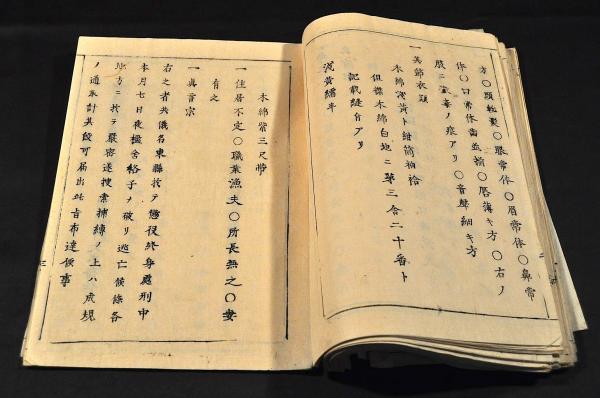 方〇頭散髪〇眼常体〇眉常体〇鼻常
体〇口常体歯並揃〇唇薄キ方〇右ノ
股ニ瘡毒ノ痕アリ〇音聲細キ方
一其節衣類
木綿浅黄ト紺筒袖袷
但襟木綿白地ニ第三舎二十番ト
記載縫付アリ
浅黄繻半
木綿紫三尺帯
一住居不定〇職業漁夫〇所長無之〇妻
有之
一真言宗
右之者共儀名東縣於テ懲役終身處刑中
本月七日夜檻舎格子ヲ破リ逃亡候條各
地方ニ於テ嚴密遂捜索捕縛ノ上ハ成規
ノ通取計其段可届出此旨布達候事